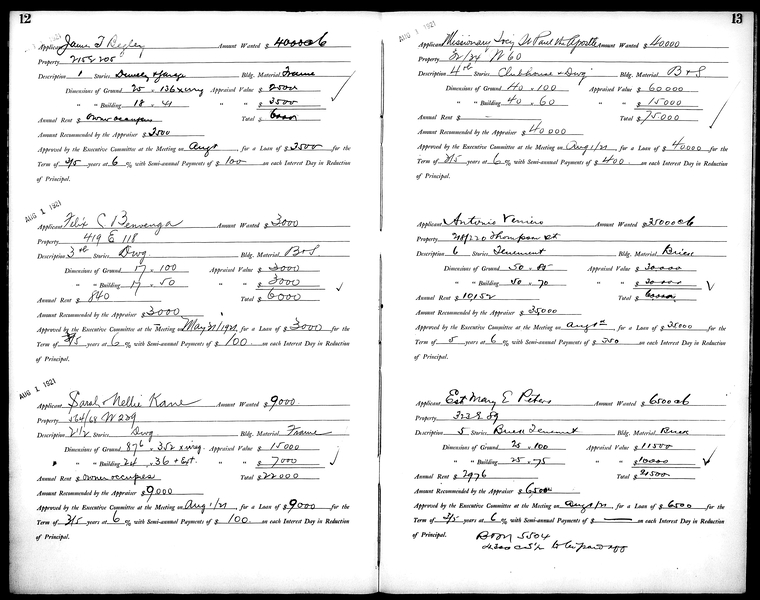 12
Applicant James T Begley Amount Wanted $ 4000
Property 215 E 205
Description 1 Stories Bldg. Material Frame
Dimensions of Ground 25 x 136 x irreg Appraised Value $ 2500
" " Building 18 x 41 " " $ 3500
Annual Rent $ owner occupies Total $ 6000
Amount Recommended by the Appraiser $ 3500
Approved by the Executive Committee at the Meeting on Aug 1 for a Loan of $ 3500 for the
Term of 3/5 years at 6 % with Semi-annual Payments of $ 100 on each Interest Day in Reduction
of Principal.
AUG 1 1921
Applicant Felix C Benvenga Amount Wanted $ 3000
Property 419 E 118
Description 3 Stories Dwg. Bldg. Material B + S
Dimensions of Ground 17 x 100 Appraised Value $ 3000
" " Building 17 x 50 " " $ 3000
Annual Rent $ 840 Total $ 6000
Amount Recommended by the Appraiser $ 3000
Approved by the Executive Committee at the Meeting on May 21/1921 for a Loan of $ 3000 for the
Term of 3/5 years at 6 % with Semi-annual Payments of $ 100 on each Interest Day in Reduction
of Principal.
AUG 1 1921
Applicant Sarah Nellie Kane Amount Wanted $ 9000
Property 564/68 W 239
Description 2 1/2 Stories Dwg Bldg. Material Frame
Dimensions of Ground 87 6 x 352 x irreg. Appraised Value $ 15000
" " Building 24 x 36 + Ext. " " $ 7000
Annual Rent $ owner occupies Total $ 22000
Amount Recommended by the Appraiser $ 9000
Approved by the Executive Committee at the Meeting on Aug 1/21 for a Loan of $ 9000 for the
Term of 3/5 years at 6 % with Semi-annual Payments of $ 100 on each Interest Day in Reduction
of Principal.
13
AUG 1 1921
Applicant Missionary Socy St Paul the Apostle Amount Wanted $ 40000
Property W 60
Description 4 th Stories Clubhouse + Dwg Bldg. Material B + S
Dimensions of Ground 40 x 100 Appraised Value $ 60000
" " Building 40 x 60 " " $ 15000
Annual Rent $ Total $ 75000
Amount Recommended by the Appraiser $ 40000
Approved by the Executive Committee at the Meeting on Aug 1/21 for a Loan of $ 40000 for the
Term of 3/5 years at 6 % with Semi-annual Payments of $ 400 on each Interest Day in Reduction
of Principal.
Applicant Antonio Veniero Amount Wanted $ 35000
Property 218/220 Thompson St
Description 6 Stories Tenement Bldg. Material Brick
Dimensions of Ground 50 x 85 Appraised Value $ 30000
" " Building 50 x 70 " " $ 30000
Annual Rent $ 10152 Total $ 60000
Amount Recommended by the Appraiser $ 35000
Approved by the Executive Committee at the Meeting on Aug 1st for a Loan of $ 35000 for the
Term of 5 years at 6 % with Semi-annual Payments of $ 350 on each Interest Day in Reduction
of Principal.
Applicant Est Mary E Peters Amount Wanted $ 6500
Property 323 E 89
Description 5 Stories Brick Tenement Bldg. Material Brick
Dimensions of Ground 25 x 100 Appraised Value $ 11500
" " Building 25 x 75 " " $ 10000
Annual Rent $ 2976 Total $ 21500
Amount Recommended by the Appraiser $ 6500
Approved by the Executive Committee at the Meeting on Aug 1/21 for a Loan of $ 6500 for the
Term of 3/5 years at 6 % with Semi-annual Payments of $ on each Interest Day in Reduction
of Principal.
5504
to be paid off